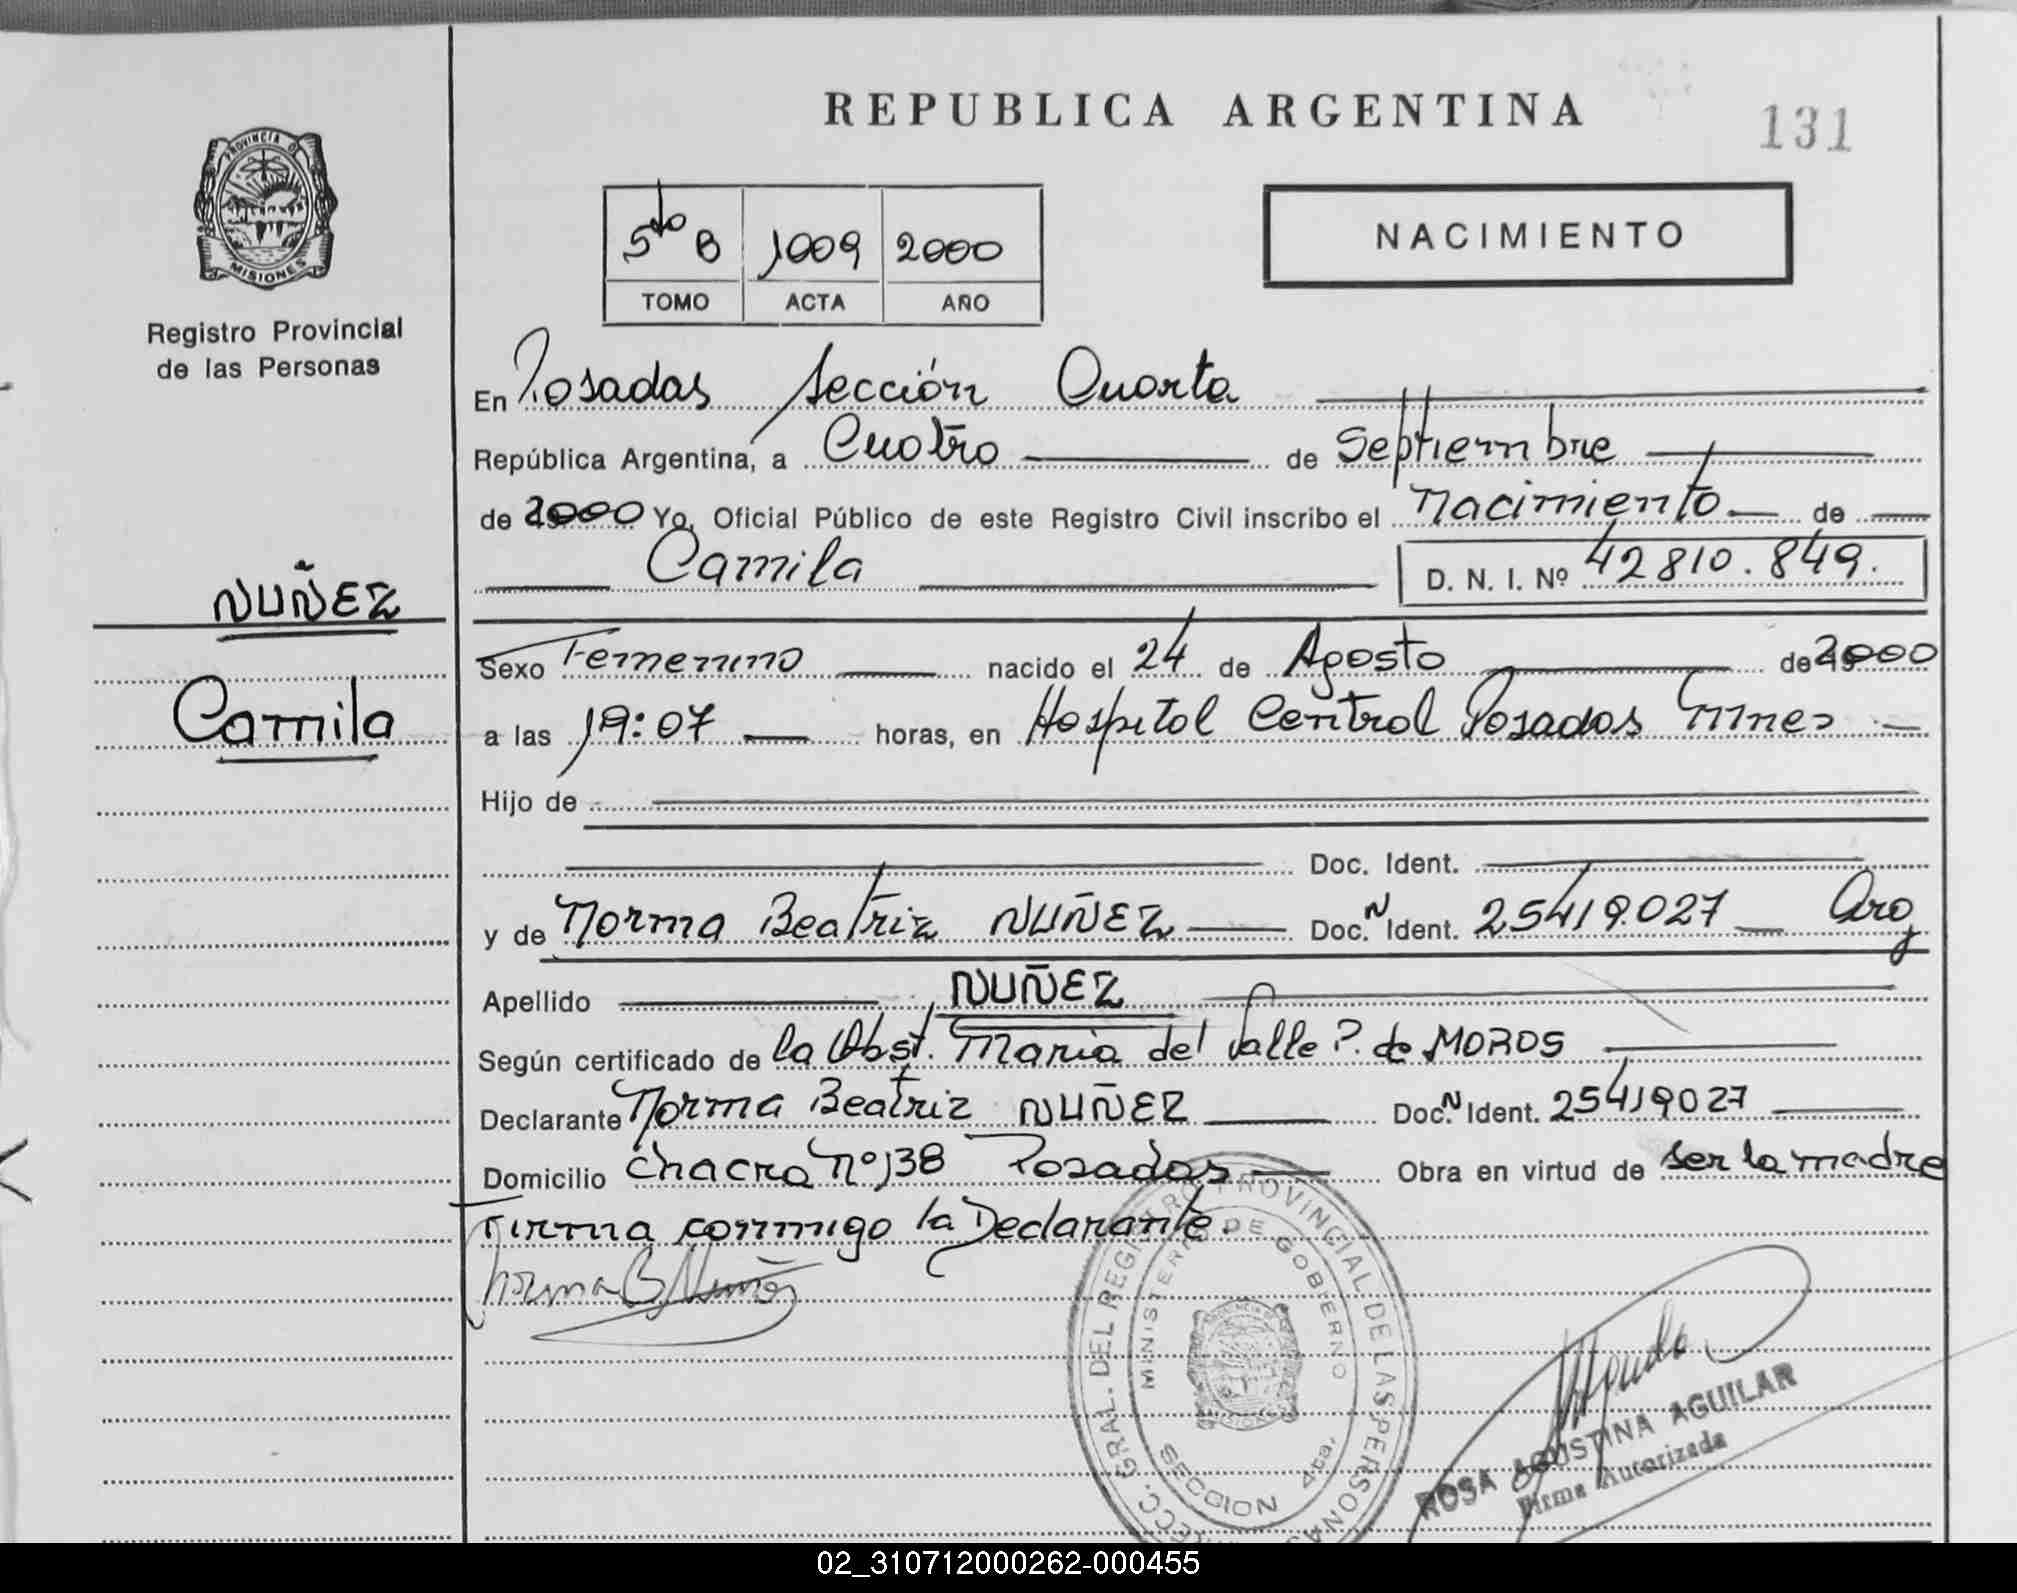 REPUBLICA ARGENTINA
131
PROVINCIA DE
MISIONES
Registro Provincial
de las Personas
5to B 1009 2000
TOMO ACTA AÑO
NACIMIENTO
En Posadas Sección Cuarta
República Argentina, a Cuatro de Septiembre
de 2000 Yo, Oficial Público de este Registro Civil inscribo el Nacimiento de
Camila D. N. I. Nº 42810.849.
NUÑEZ
Camila
Sexo Femenino nacido el 24 de Agosto de 2000
a las 19:07 horas, en Hospital Central Posadas Mnes
Hijo de
Doc. Ident.
y de Norma Beatriz NUÑEZ Doc. N Ident. 25419.027 Arg
Apellido NUÑEZ
Según certificado de la Obst. Maria del Valle P. de MOROS
Declarante Norma Beatriz NUÑEZ Doc. N Ident. 25419027
Domicilio Chacra Nº 138 Posadas Obra en virtud de ser la madre
Firma conmigo la Declarante.
Norma B Nuñez
GRAL. DEL REGISTRO PROVINCIAL DE LAS PERSONAS
MINISTERIO DE GOBIERNO
SECCION 4ta.
ROSA AGUSTINA AGUILAR
Firma Autorizada
02_310712000262-000455